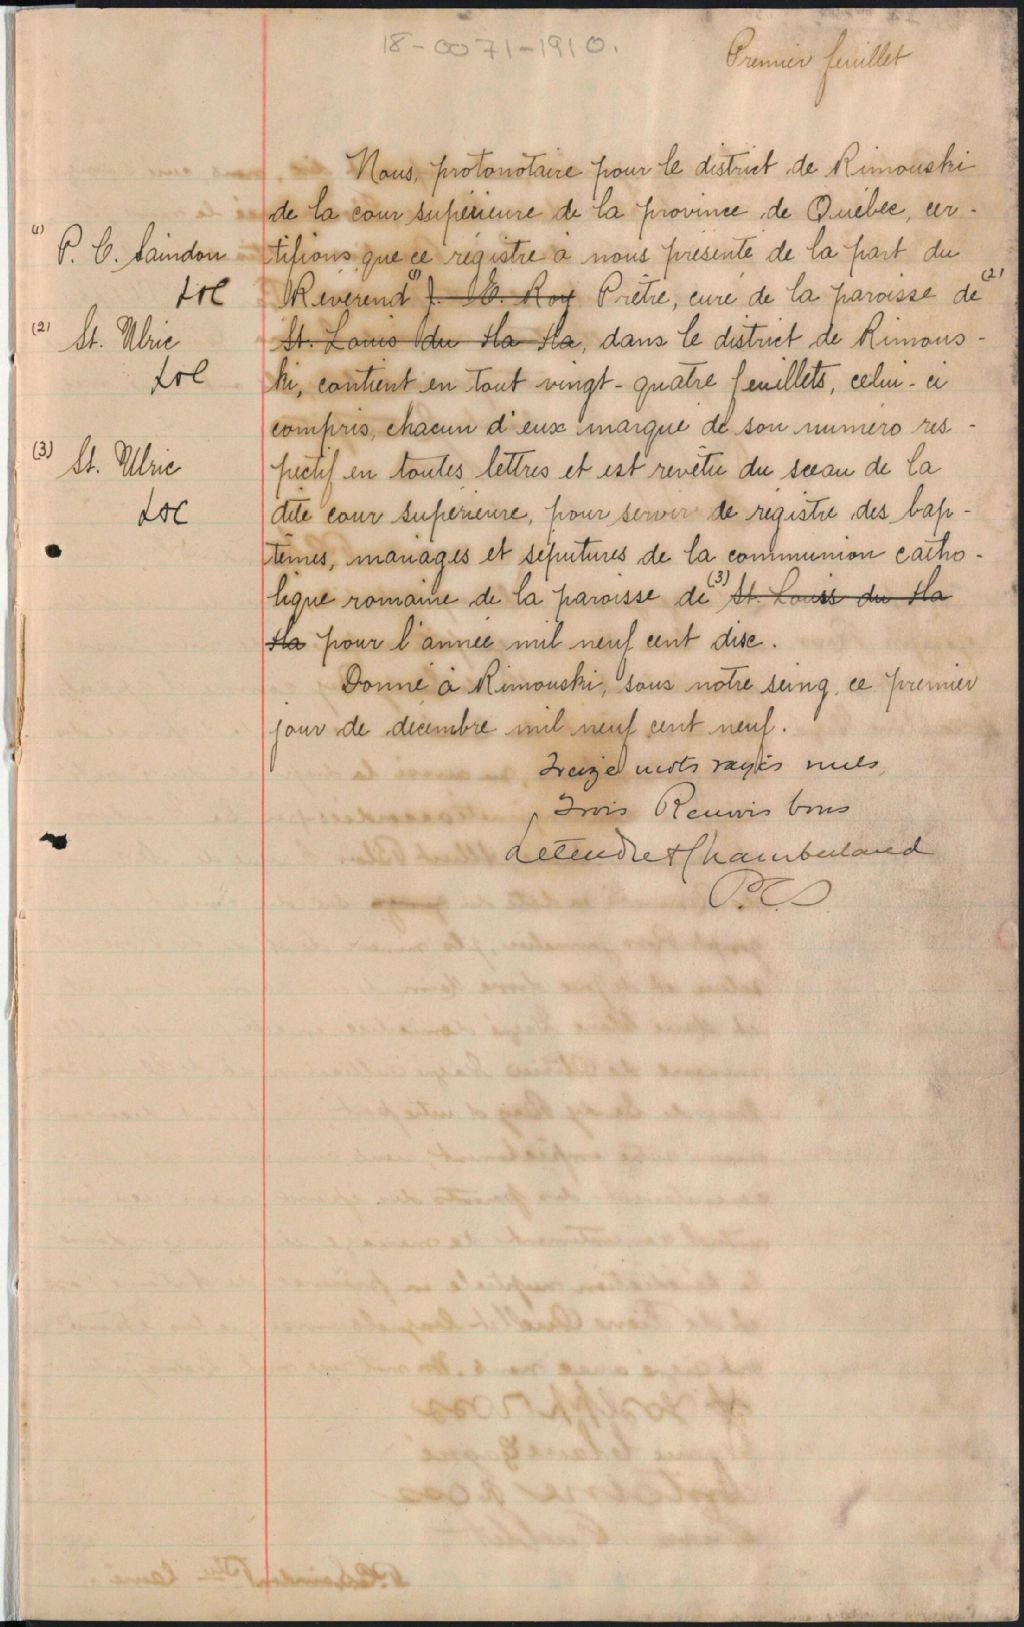 18-0071-1910.
Premier feuillet
Nous, protonotaire pour le district de Rimouski
de la cour supérieure de la province de Québec, cer-
tifions que ce régistre à nous présenté de la part du
Révérend (1) J. E. Roy Prêtre, curé de la paroisse de (2)
St. Louis du Ha Ha, dans le district de Rimous-
ki, contient en tout vingt-quatre feuillets, celui-ci
compris, chacun d'eux marqué de son numéro res-
pectif en toutes lettres et est revêtu du sceau de la
dite cour supérieure, pour servir de régistre des bap-
têmes, mariages et sépultures de la communion catho-
lique romaine de la paroisse de (3) St. Louis du Ha
Ha pour l'année mil neuf cent dix.
Donné à Rimouski, sous notre seing, ce premier
jour de décembre mil neuf cent neuf.
Treize mots rayés nuls
Trois Renvois bons
Letendre & Chamberland
P.C.S.
(1) P. C. Saindon
L&C
(2) St. Ulric
L&C
(3) St. Ulric
L&C